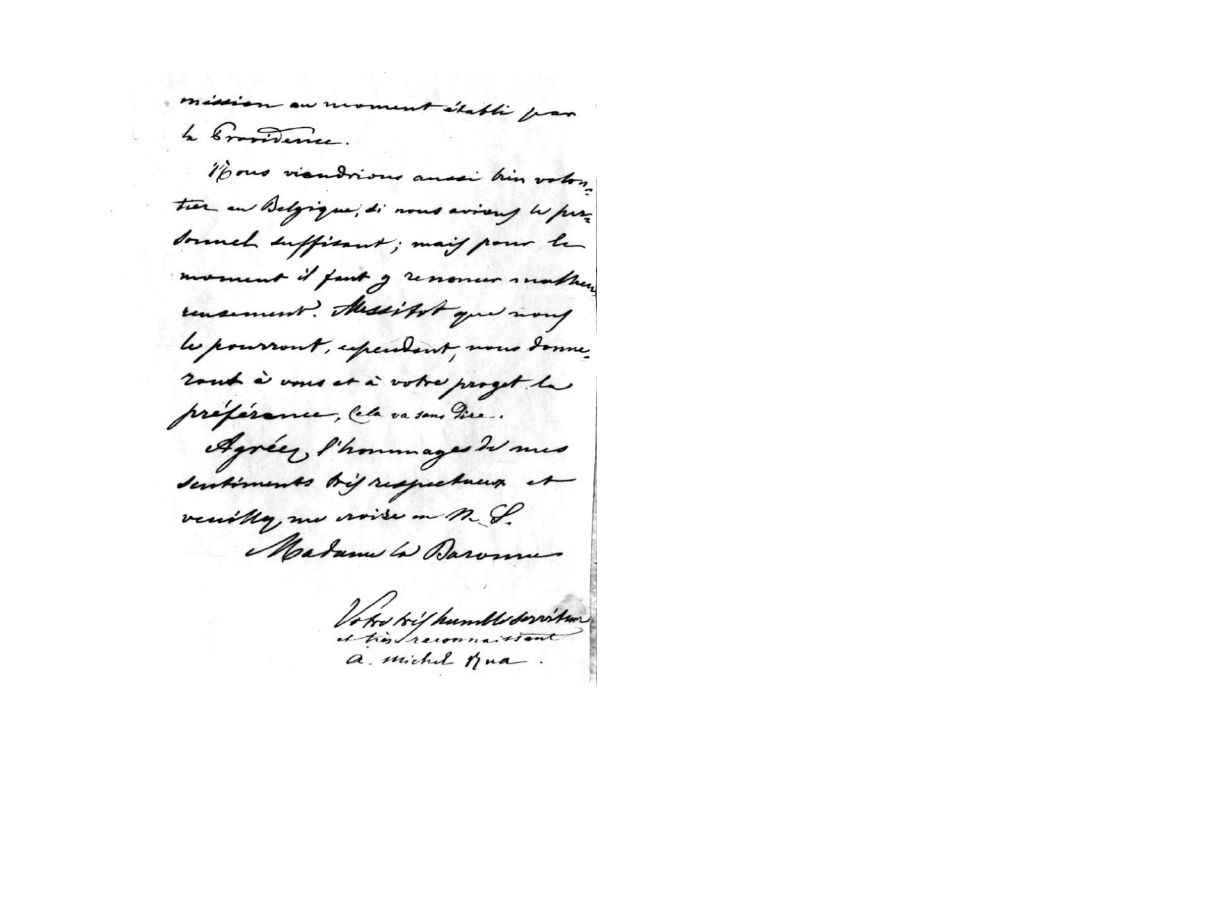 mission au moment établi par
la Providence.
Nous viendrions aussi bien volon=
tier en Belgique, si nous avions le per=
sonnel suffisant; mais pour le
moment il faut y renoncer malheu
reusement. Aussitot que nous
le pourront, cependant, nous donne=
ront à vous et à votre proget la
préférence, Cela va sans dire.
Agréez, l'hommages de mes
sentiments très respectueux et
veuillez, me croire en N. S.
Madame la Baronne
Votre très humble serviteur
et très reconnaissant
a. Michel Rua.